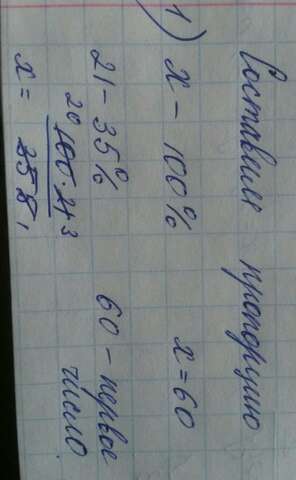 Составим пропорцию
1) x - 100% x = 60
21 - 35% 60 - первое число
x = 20 100 · 21 3 / 35 5 ,